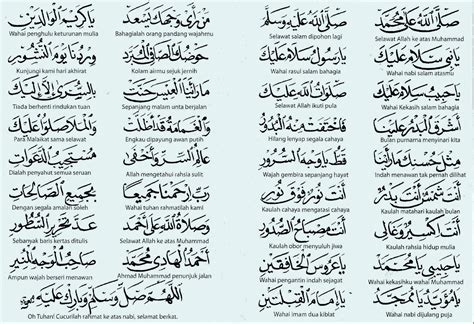 صَلَّى اللهُ عَلَى مُحَمَّدْ صَلَّى اللهُ عَلَيْهِ وَسَلَّمْ
Selawat Allah ke atas Muhammad Selawat salam dipohon lagi
يَا نَبِي سَلَامْ عَلَيْكَ يَا رَسُولْ سَلَامْ عَلَيْكَ
Wahai nabi salam atasmu Wahai rasul salam bahagia
يَا حَبِيبْ سَلَامْ عَلَيْكَ صَلَوَاتُ اللهِ عَلَيْكَ
Wahai Kekasih salam bahagia Selawat Allah ikuti pula
أَشْرَقَ الْبَدْرُ عَلَيْنَا فَاخْتَفَتْ مِنْهُ الْبُدُورُ
Bulan purnama menyinari kita Hilang lenyap segala cahaya
مِثْلَ حُسْنِكَ مَا رَأَيْنَا قَطُّ يَا وَجْهَ السُّرُورِ
Indah menawan tak pernah dilihat Wajah gembira sepanjang hayat
أَنْتَ شَمْسٌ أَنْتَ بَدْرٌ أَنْتَ نُورٌ فَوْقَ نُورِ
Kaulah matahari kaulah bulan Kaulah cahaya mengatasi cahaya
أَنْتَ مِصْبَاحُ الصُّدُورِ
Kaulah rahsia hidup mulia Kaulah obor menyuluh jiwa
يَا حَبِيبِي يَا مُحَمَّدْ يَا عَرُوسَ الْخَافِقَيْنِ
Wahai kekasihku wahai Muhammad Wahai pengantin timur dan barat
يَا مُؤَيَّدْ يَا مُمَجَّدْ يَا إِمَامَ الْقِبْلَتَيْنِ
Wahai nabi dijulang puja Wahai imam dua kiblat
مَنْ رَأَى وَجْهَكَ يَسْعَدْ يَا كَرِيمَ الْوَالِدَيْنِ
Bahagialah orang pandang wajahmu Wahai penghulu keturunan mulia
حَوْضُكَ الصَّافِي الْمُبَرَّدْ وِرْدُنَا يَوْمَ النُّشُورِ
Kolam airmu sejuk jernih Kunjungi kami hari akhirat
مَا رَأَيْنَا الْعِيسَ حَنَّتْ بِالسُّرَى إِلَّا إِلَيْكَ
Sepanjang malam unta berjalan Tiada berhenti rindukan tuan
وَالْغَمَامَةُ قَدْ أَظَلَّتْ وَالْمَلَا صَلُّوا عَلَيْكَ
Engkau dipayung awan putih Para Malaikat sama selawat
عَالِمُ السِّرِّ وَأَخْفَى مُسْتَجِيبُ الدَّعَوَاتِ
Allah mengetahui rahsia sulit Dialah penyahut semua seruan
رَبِّ ارْحَمْنَا جَمِيعًا بِجَمِيعِ الصَّالِحَاتِ
Wahai tuhan rahmatilah kami Dengan segala amalan soleh
وَصَلَاةُ اللهِ عَلَى أَحْمَدْ عَدَّ تَحْرِيرِ السُّطُورِ
Selawat Allah ke atas Muhammad Sebanyak baris kertas ditulis
أَحْمَدُ الْهَادِي مُحَمَّدْ صَاحِبُ الْوَجْهِ الْمُنِيرِ
Ahmad Muhammad penunjuk jalan Ampun wajah berseri menawan
اَللّٰهُمَّ صَلِّ وَسَلِّمْ وَبَارِكْ عَلَيْهِ
Oh Tuhan! Cucurilah rahmat ke atas nabi, selamat berkat.